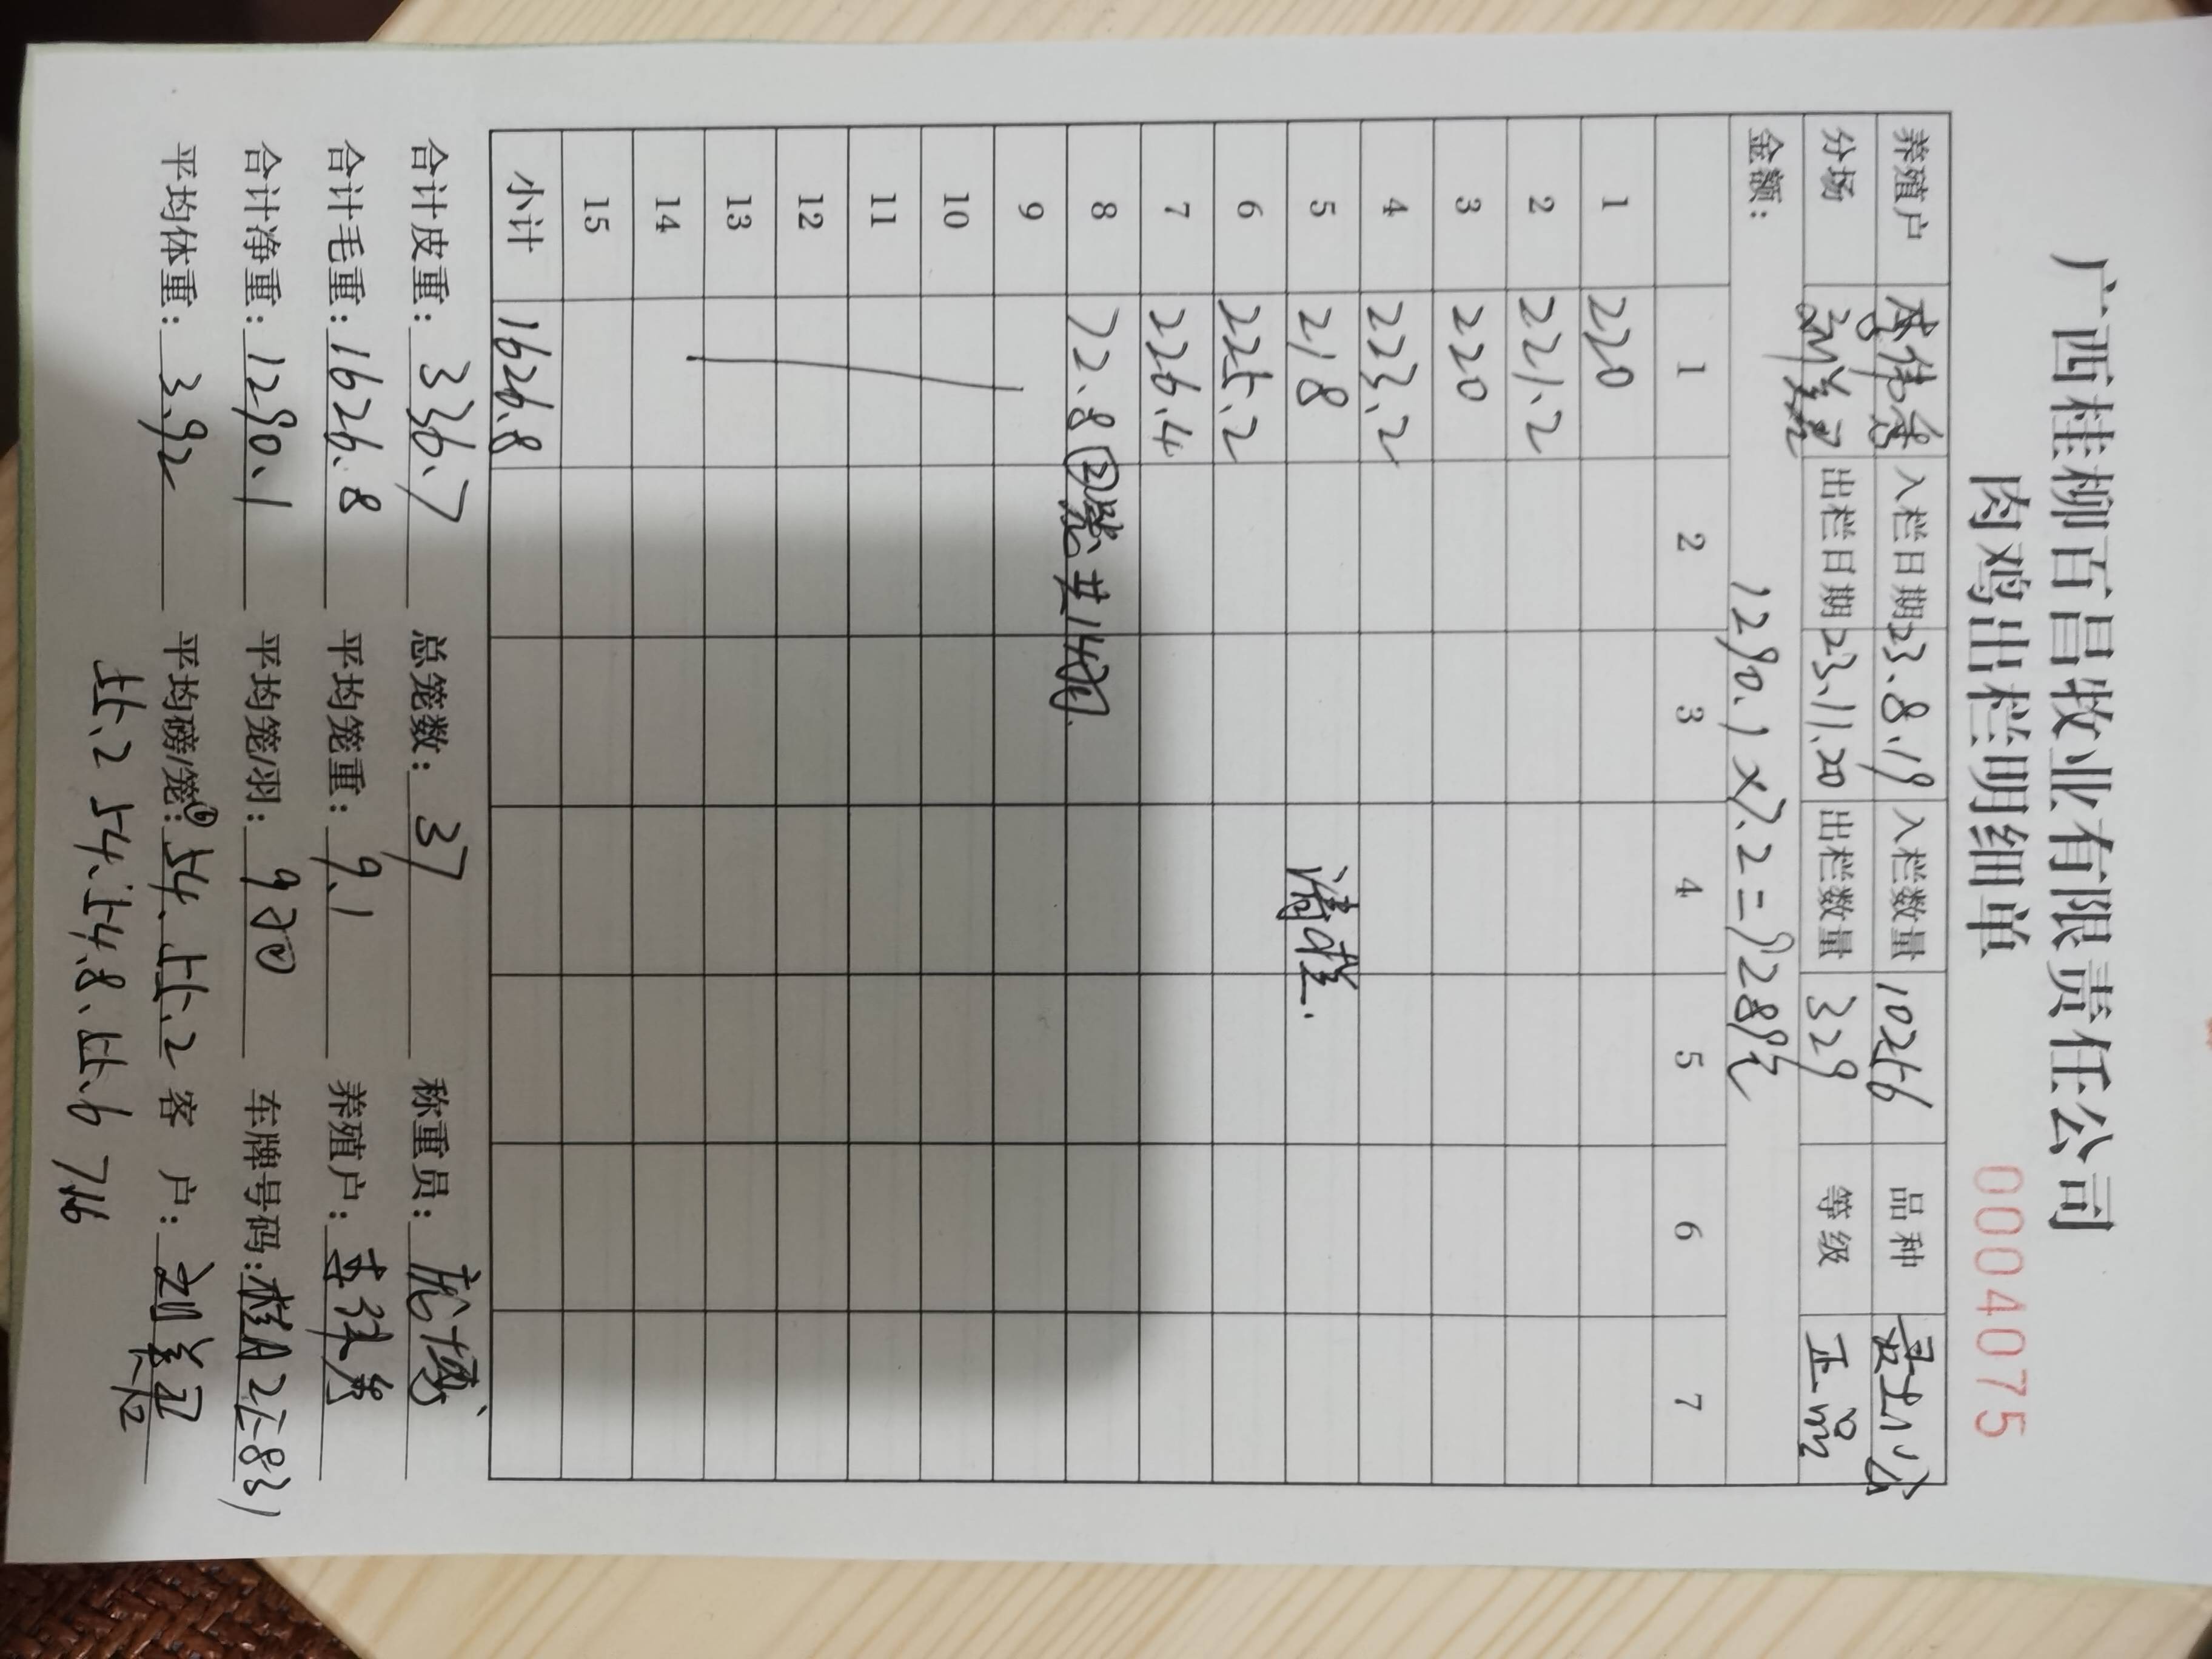 广西桂柳百昌牧业有限责任公司
肉鸡出栏明细单 0004075
养殖户 入栏日期 23.8.19 入栏数量 10256 品种
分场 出栏日期 23.11.20 出栏数量 329 等级 正品
金额: 1290.1×7.2=9289元
1 2 3 4 5 6 7
1 220
2 221.2
3 220
4 223.2
5 218 清栏.
6 225.2
7 226.4
8 72.8 ②笼共14只
9
10
11
12
13
14
15
小计 1626.8
合计皮重: 336.7 总笼数: 37 称重员:
合计毛重: 1626.8 平均笼重: 9.1 养殖户:
合计净重: 1290.1 平均笼/羽: 9 车牌号码:
平均体重: 3.92 平均磅/笼: ⑥ 54. 55.2 客 户:
55.2 54. 54.8. 55.6